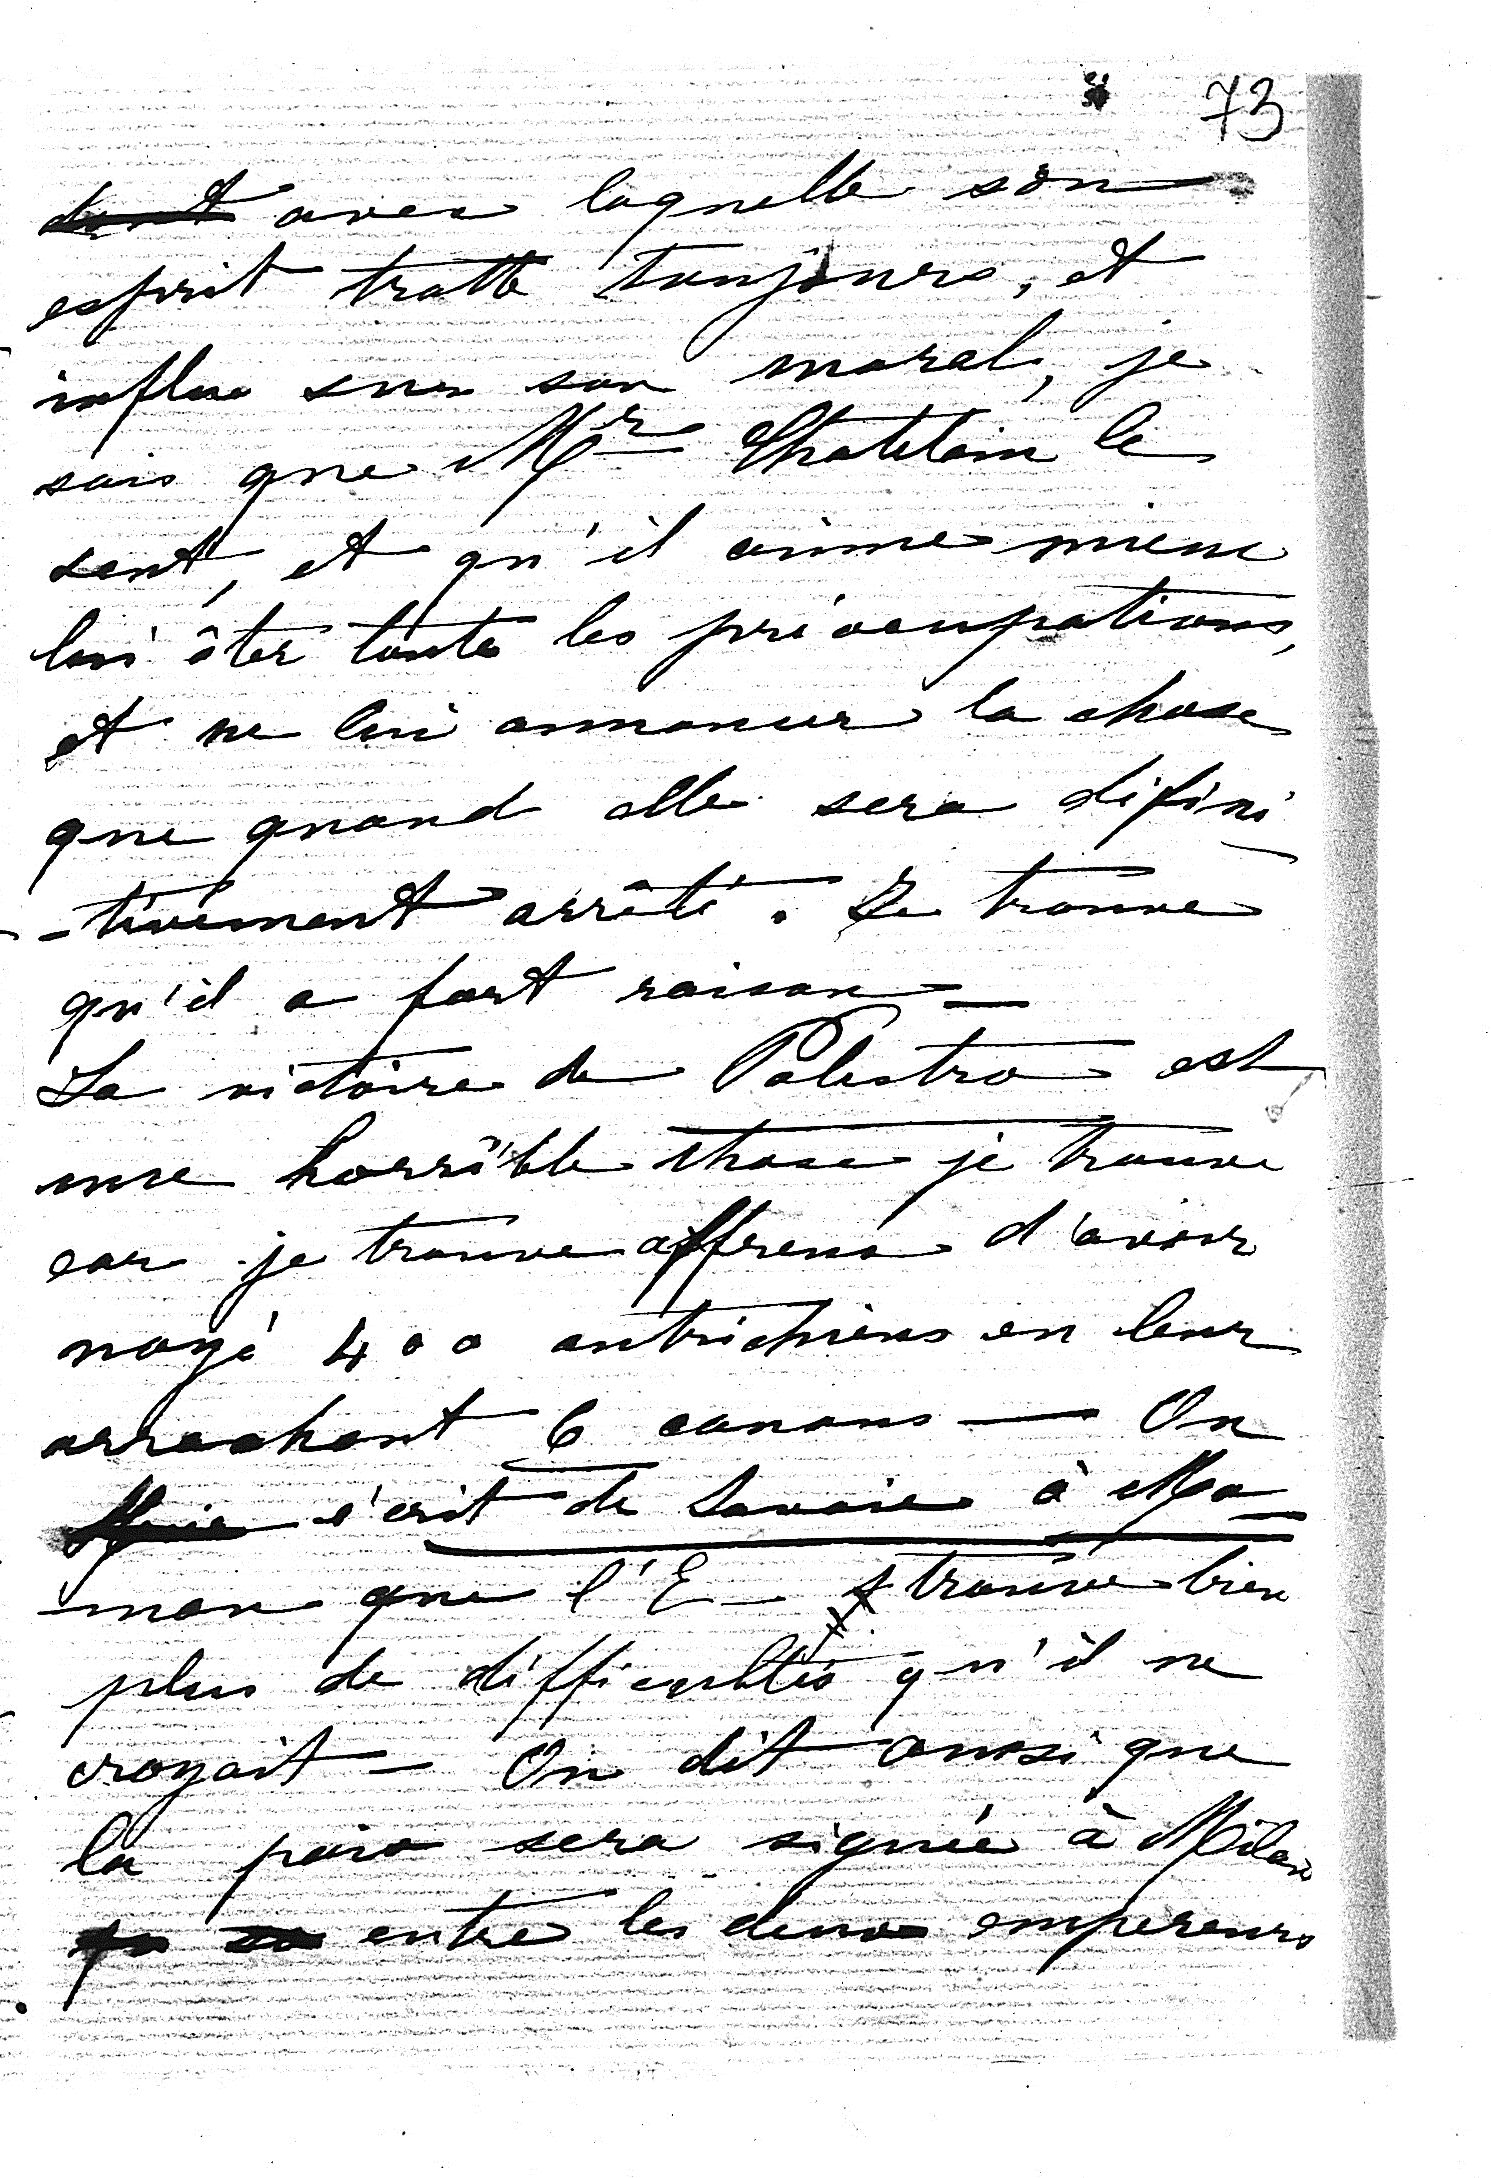 73
dont avec laquelle son
esprit trotte toujours, et
influe sur son moral, je
sais que Mr Chatelain le
sent, et qu'il aime mieux
lui ôter toute les préocupations,
et ne lui annoncer la chose
que quand elle sera défini
-tivement arrêté. Je trouve
qu'il a fort raison —
La victoire de Palestro est
une horrible chose je trouve
car je trouve affreux d'avoir
noyé 400 autrichiens en leur
arrachant 6 canons — On
écrit de Savoie à Ma
-man que l'E — trouve bien
plus de difficultés qu'il ne
croyait — On dit aussi que
la paix sera signée à Milan
entre les deux empereurs